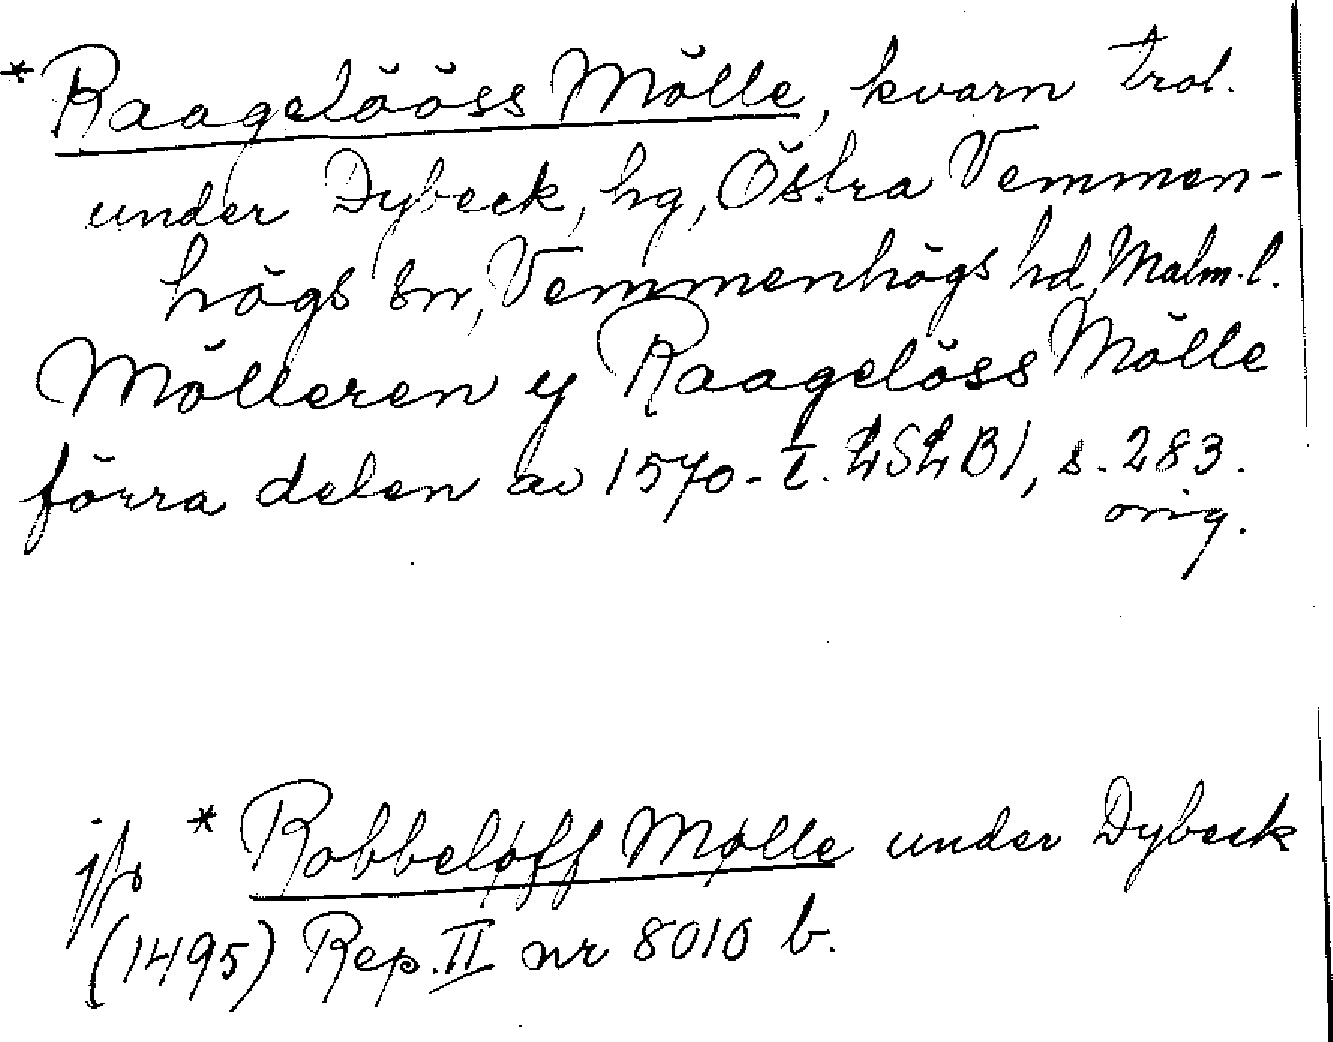 * Raagelööss Mölle, kvarn trol.
under Dybeck, hg, Östra Vemmen-
högs sn, Vemmenhögs hd, Malm. l.
Mölleren y Raagelöss Mölle
förra delen av 1570-t. LSLB1, s. 283.
orig.
jfr * Robbeløff Mølle under Dybeck
(1495) Rep. II nr 8010 b.